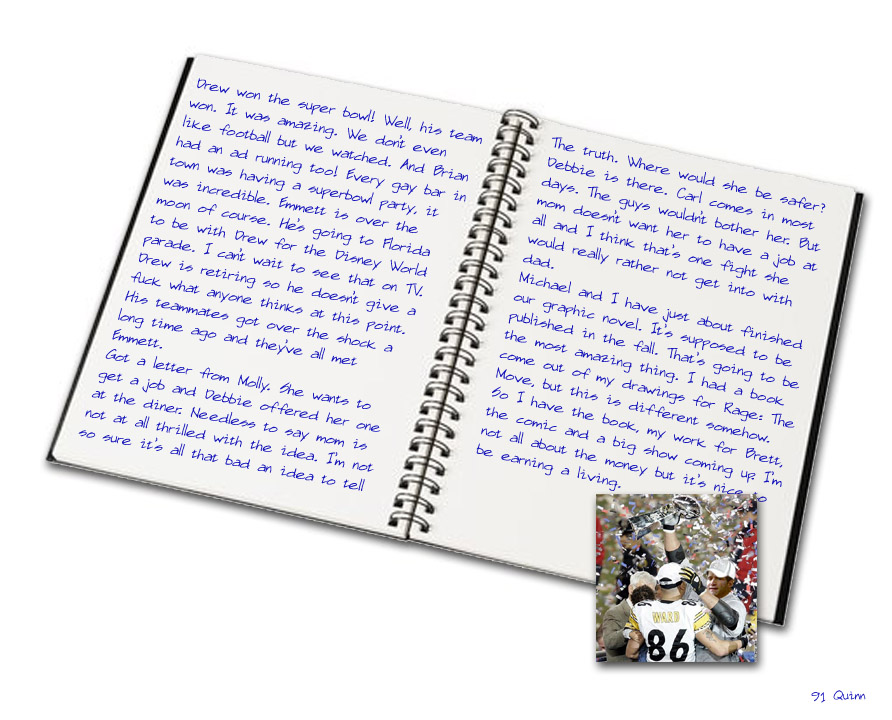 Drew won the super bowl! Well, his team
won. It was amazing. We don't even
like football but we watched. And Brian
had an ad running too! Every gay bar in
town was having a superbowl party, it
was incredible. Emmett is over the
moon of course. He's going to Florida
to be with Drew for the Disney World
parade. I can't wait to see that on TV.
Drew is retiring so he doesn't give a
fuck what anyone thinks at this point.
His teammates got over the shock a
long time ago and they've all met
Emmett.
Got a letter from Molly. She wants to
get a job and Debbie offered her one
at the diner. Needless to say mom is
not at all thrilled with the idea. I'm not
so sure it's all that bad an idea to tell
The truth. Where would she be safer?
Debbie is there. Carl comes in most
days. The guys wouldn't bother her. But
mom doesn't want her to have a job at
all and I think that's one fight she
would really rather not get into with
dad.
Michael and I have just about finished
our graphic novel. It's supposed to be
published in the fall. That's going to be
the most amazing thing. I had a book
come out of my drawings for Rage: The
Move, but this is different somehow.
So I have the book, my work for Brett,
the comic and a big show coming up. I'm
not all about the money but it's nice to
be earning a living.
WARD
86
91 Quinn